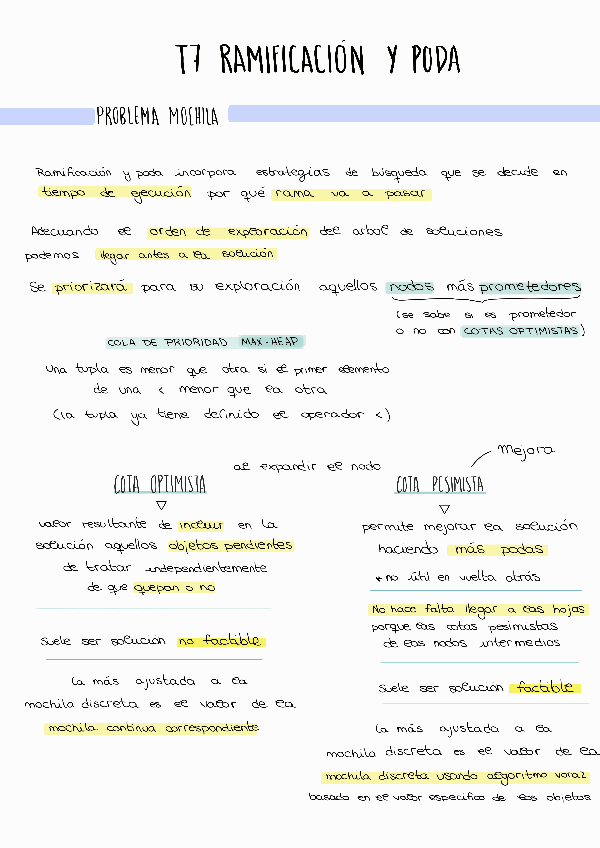 T7 RAMIFICACIÓN Y PODA
PROBLEMA MOCHILA
Ramificación y poda incorpora estrategias de búsqueda que se decide en
tiempo de ejecución por qué rama va a pasar
Adecuando el orden de exploración del arbol de soluciones
podemos llegar antes a la solución
Se priorizará para su exploración aquellos nodos más prometedores
(se sabe si es prometedor
o no con COTAS OPTIMISTAS)
COLA DE PRIORIDAD MAX-HEAP
Una tupla es menor que otra si el primer elemento
de una < menor que la otra
(la tupla ya tiene definido el operador <)
Mejora
al expandir el nodo
COTA OPTIMISTA
▽
valor resultante de incluir en la
solución aquellos objetos pendientes
de tratar independientemente
de que quepan o no
suele ser solución no factible
la más ajustada a la
mochila discreta es el valor de la
mochila continua correspondiente
COTA PESIMISTA
▽
permite mejorar la solución
haciendo más podas
* no útil en vuelta atrás
No hace falta llegar a las hojas
porque las cotas pesimistas
de los nodos intermedios
suele ser solución factible
la más ajustada a la
mochila discreta es el valor de la
mochila discreta usando algoritmo voraz
basado en el valor específico de los objetos